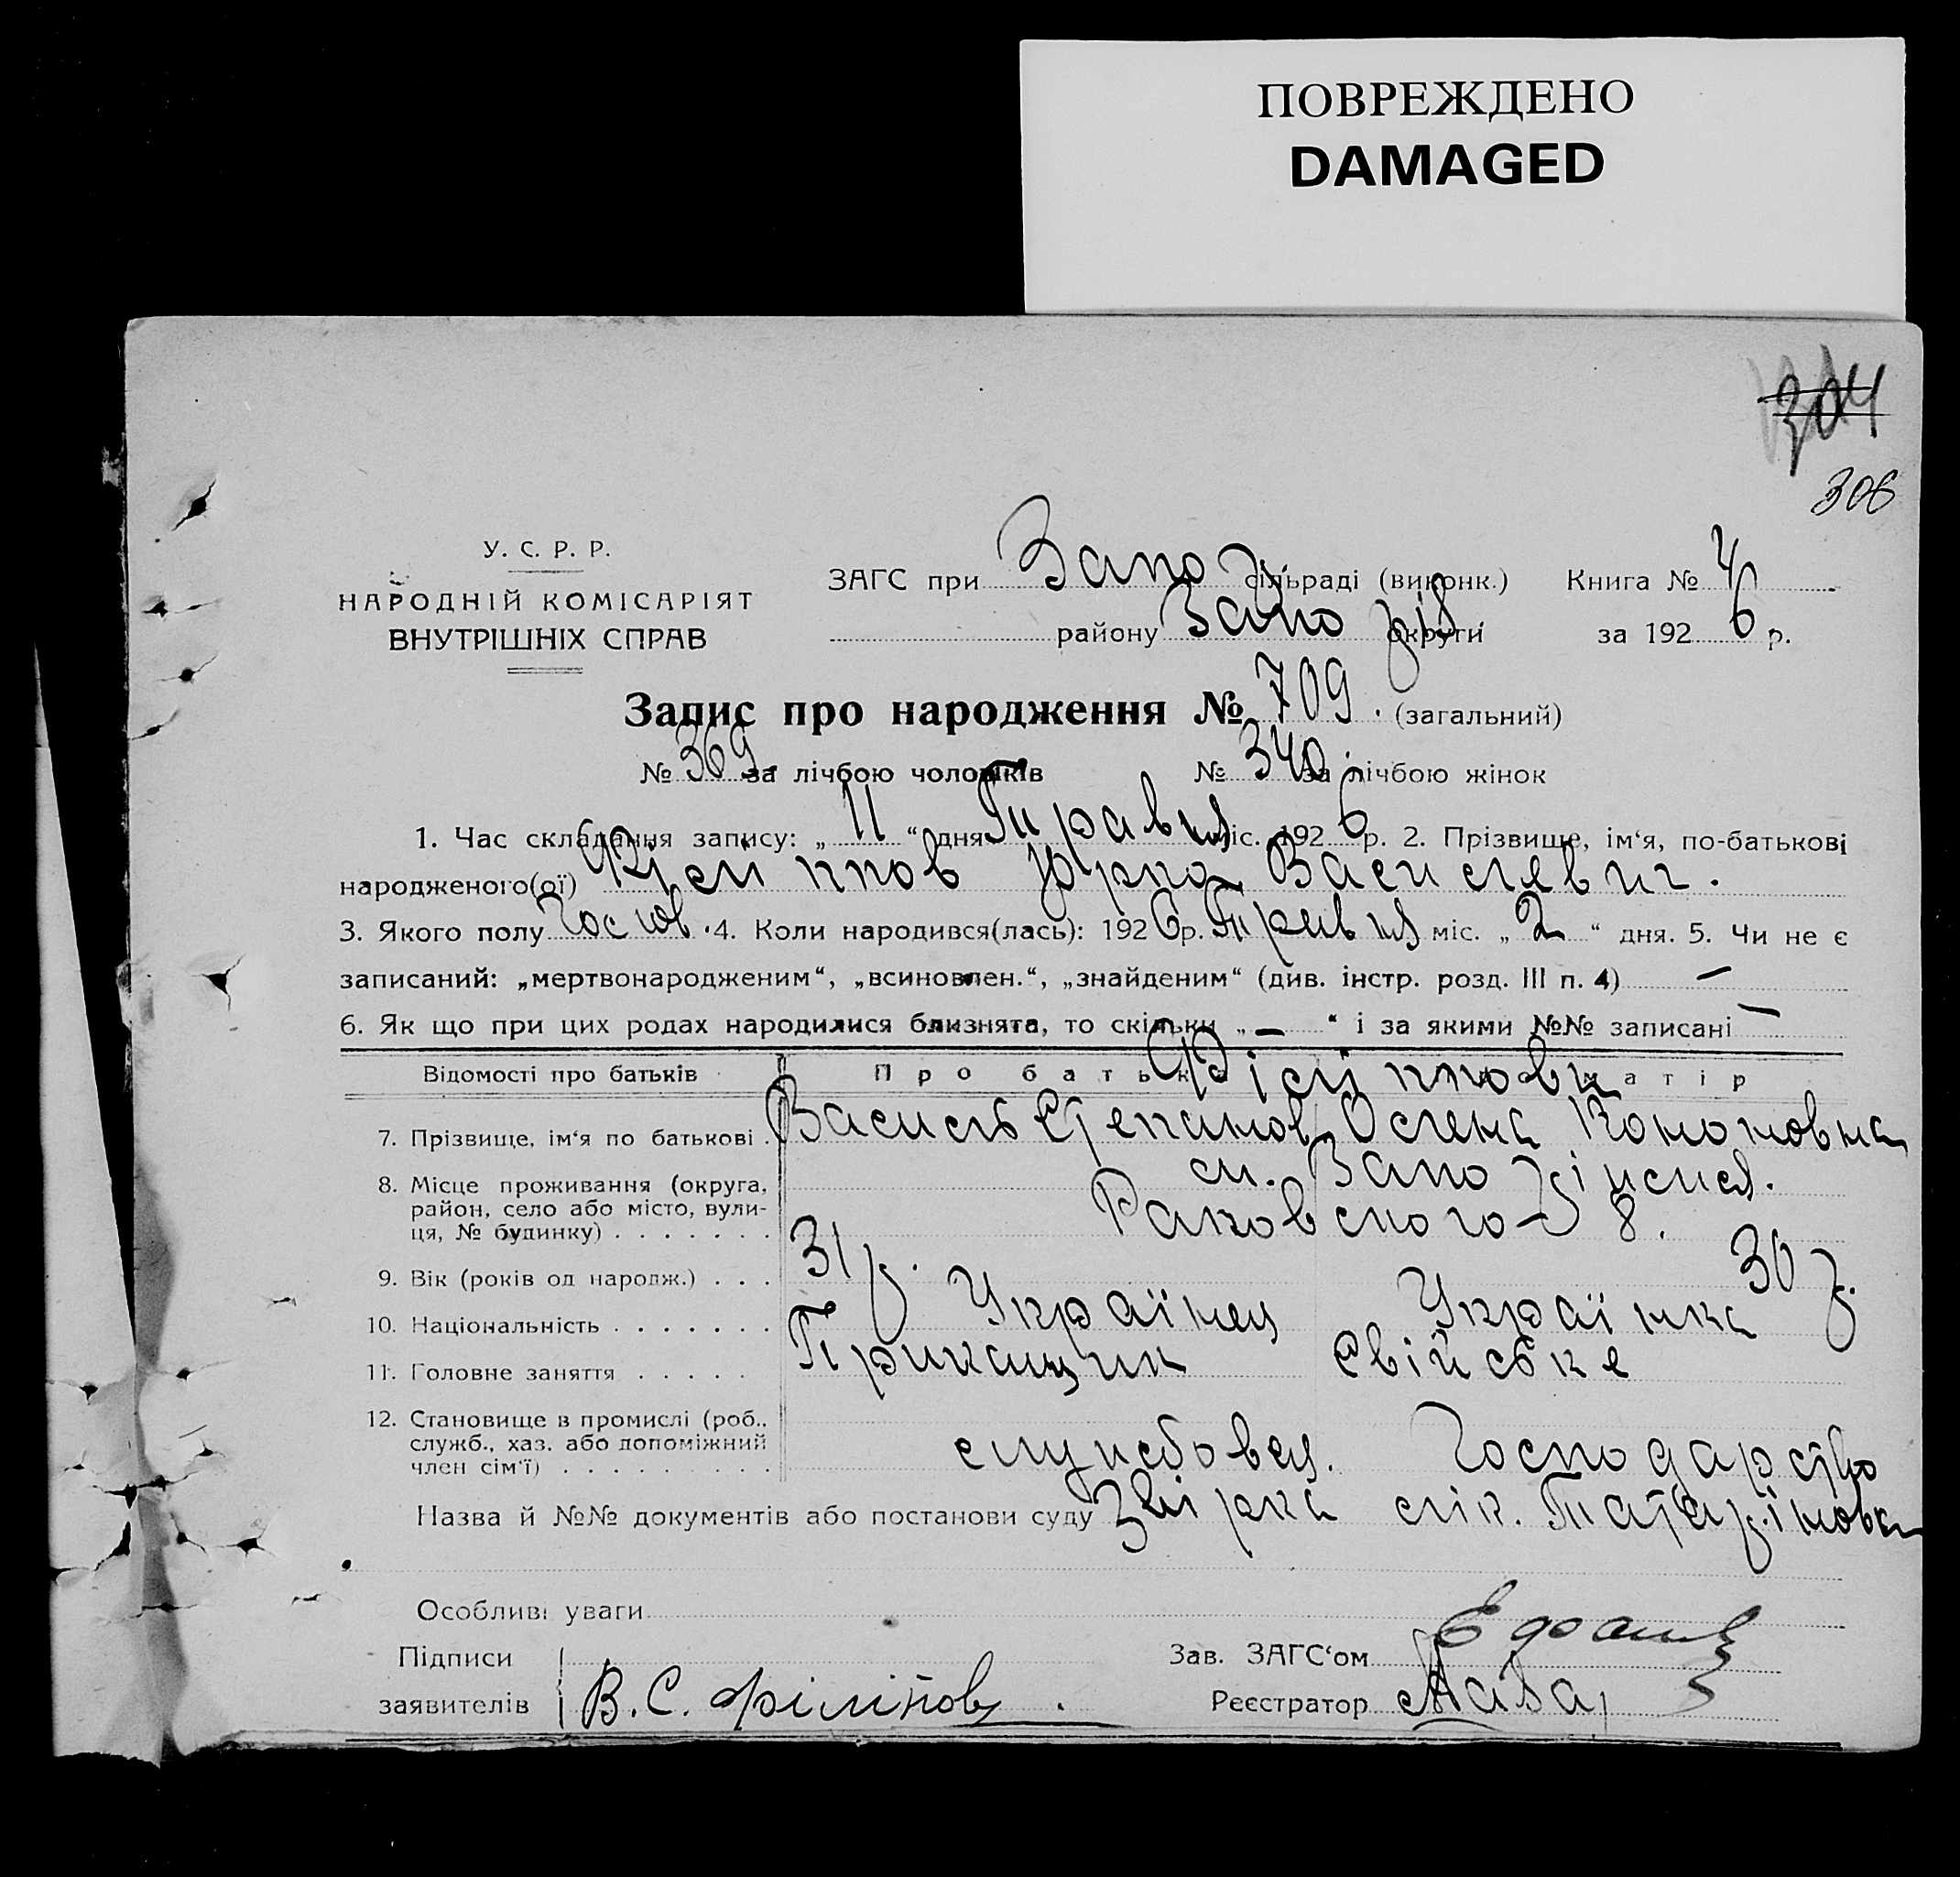 ПОВРЕЖДЕНО
DAMAGED
304
306
У. С. Р. Р.
НАРОДНІЙ КОМІСАРІЯТ
ВНУТРІШНІХ СПРАВ
ЗАГС при Запоріз сільраді (виконк.) Книга № 4
району Запоріз округи за 1926 р.
Запис про народження № 709. (загальний)
№ 369. за лічбою чоловіків № 340. за лічбою жінок
1. Час складання запису: „ 11 “ дня Травня міс. 1926 р. 2. Прізвище, ім‘я, по-батькові
народженого(ої) Філіппов Юрко Василєвич.
3. Якого полу Чолов. 4. Коли народився(лась): 1926 р. Травня міс. „ 2 “ дня. 5. Чи не є
записаний: „мертвонародженим“, „всиновлен.“, „знайденим“ (див. інстр. розд. III п. 4) —
6. Як що при цих родах народилися близнята, то скільки „ — “ і за якими №№ записані —
Відомості про батьків Про батька Про матір
Філіппови
7. Прізвище, ім‘я по батькові . Василь Степанов Олена Кононовна
8. Місце проживання (округа, район, село або місто, вулиця, № будинку) . . . . . . . м. Запоріжжя.
Раковского 8.
9. Вік (років од народж.) . . . 31 р. 30 р.
10. Національність . . . . . . . Українец Українка
11. Головне заняття . . . . . Прикащик Свійське
12. Становище в промислі (роб., служб., хаз. або допоміжний член сім‘ї) . . . . . . . . . службовец. Господарство
Назва й №№ документів або постанови суду Звірка лік. Татарінова
Особливі уваги
Підписи Зав. ЗАГС‘ом
заявителів В. С. Філіпов Реєстратор